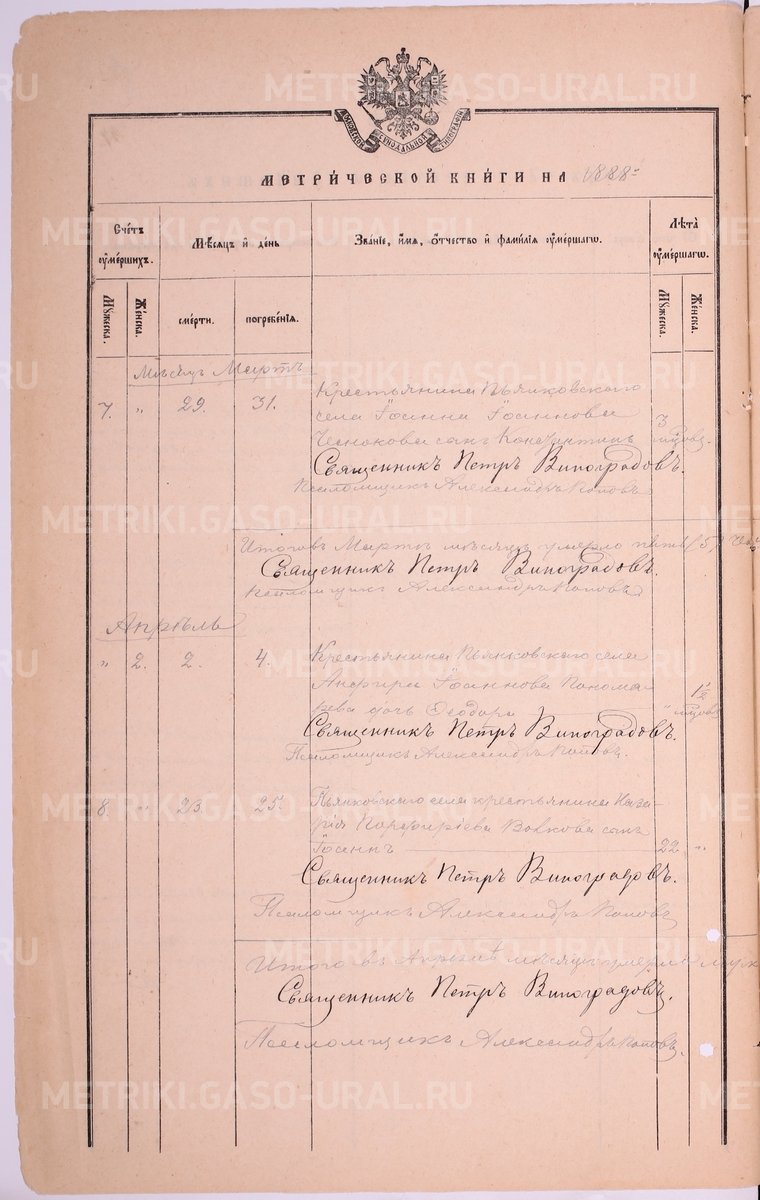 МОСКОВСКОЙ СѴНОДАЛЬНОЙ ТИПОГРАФІИ
МЕТРИ́ЧЕСКОЙ КНИ́ГИ НА 1888
Сче́тъ ᲂу҆ме́ршихъ.
Мѣ́сяцъ и҆ де́нь
Зва́ніе, и҆́мя, ѻ҆́тчество и҆ фами́лія ᲂу҆ме́ршагѡ.
Лѣ́та ᲂу҆ме́ршагѡ.
Мꙋ́жеска.
Же́нска.
сме́рти.
погребе́нія.
Мꙋ́жеска.
Же́нска.
Мѣсяцъ Мартъ
7. " 29. 31.
Крестьянина Пьянковскаго
села Іоанна Іоаннова
Чеснокова сынъ Константинъ 3 мѣсяц.
Священникъ Петръ Виноградовъ.
Псаломщикъ Александръ Поповъ
Итого въ Мартѣ мѣсяцѣ умерло пять (5)
Священникъ Петръ Виноградовъ.
Псаломщикъ Александръ Поповъ
Апрѣль
" 2. 2. 4.
Крестьянина Пьянковскаго села
Анфира Іоаннова Понома-
рева дочь Ѳеодора " 1½
Священникъ Петръ Виноградовъ.
Псаломщикъ Александръ Поповъ.
8. " 23. 25.
Пьянковскаго села крестьянина Наза-
рія Порфиріева Волкова сынъ
Іоаннъ 22. "
Священникъ Петръ Виноградовъ.
Псаломщикъ Александръ Поповъ
Итого въ Апрѣлѣ мѣсяцѣ умерло
Священникъ Петръ Виноградовъ.
Псаломщикъ Александръ Поповъ.
METRIKI.GASO-URAL.RU